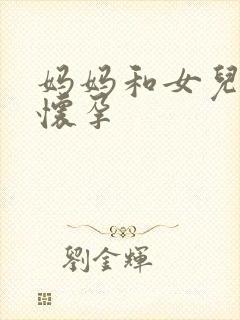 妈妈和女兒
懷孕
劉金輝